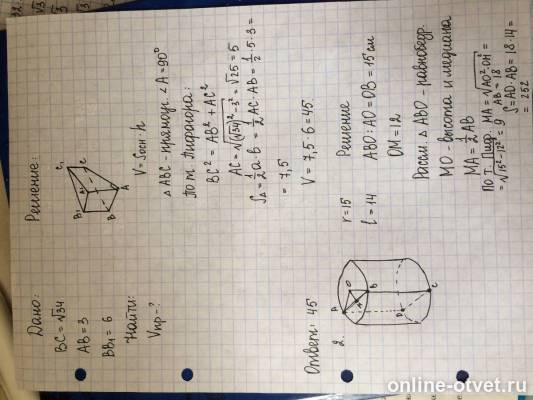 Дано:
BC = √34
AB = 3
BB₁ = 6
Найти:
Vпр - ?
Решение:
C₁
C
A₁
A
B₁
B
V = Sосн · h
△ABC - прямоуг. ∠A = 90°
По т. Пифагора:
BC² = AB² + AC²
AC = √(√34)² - 3² = √25 = 5
S△ = 1/2 a · b = 1/2 AC · AB = 1/2 · 5 · 3 =
= 7,5
V = 7,5 · 6 = 45
Ответ: 45
2.
A
O
B
D
C
r = 15
l = 14
Решение
ABO: AO = OB = 15 см
OM = 12
Рассм. △ABO - равнобедр.
MO - высота и медиана
MA = 1/2 AB
По т. Пиф. MA = √AO² - OH² =
= √15² - 12² = 9
AB = 18
S = AD · AB = 18 · 14 =
= 252
online-otvet.ru